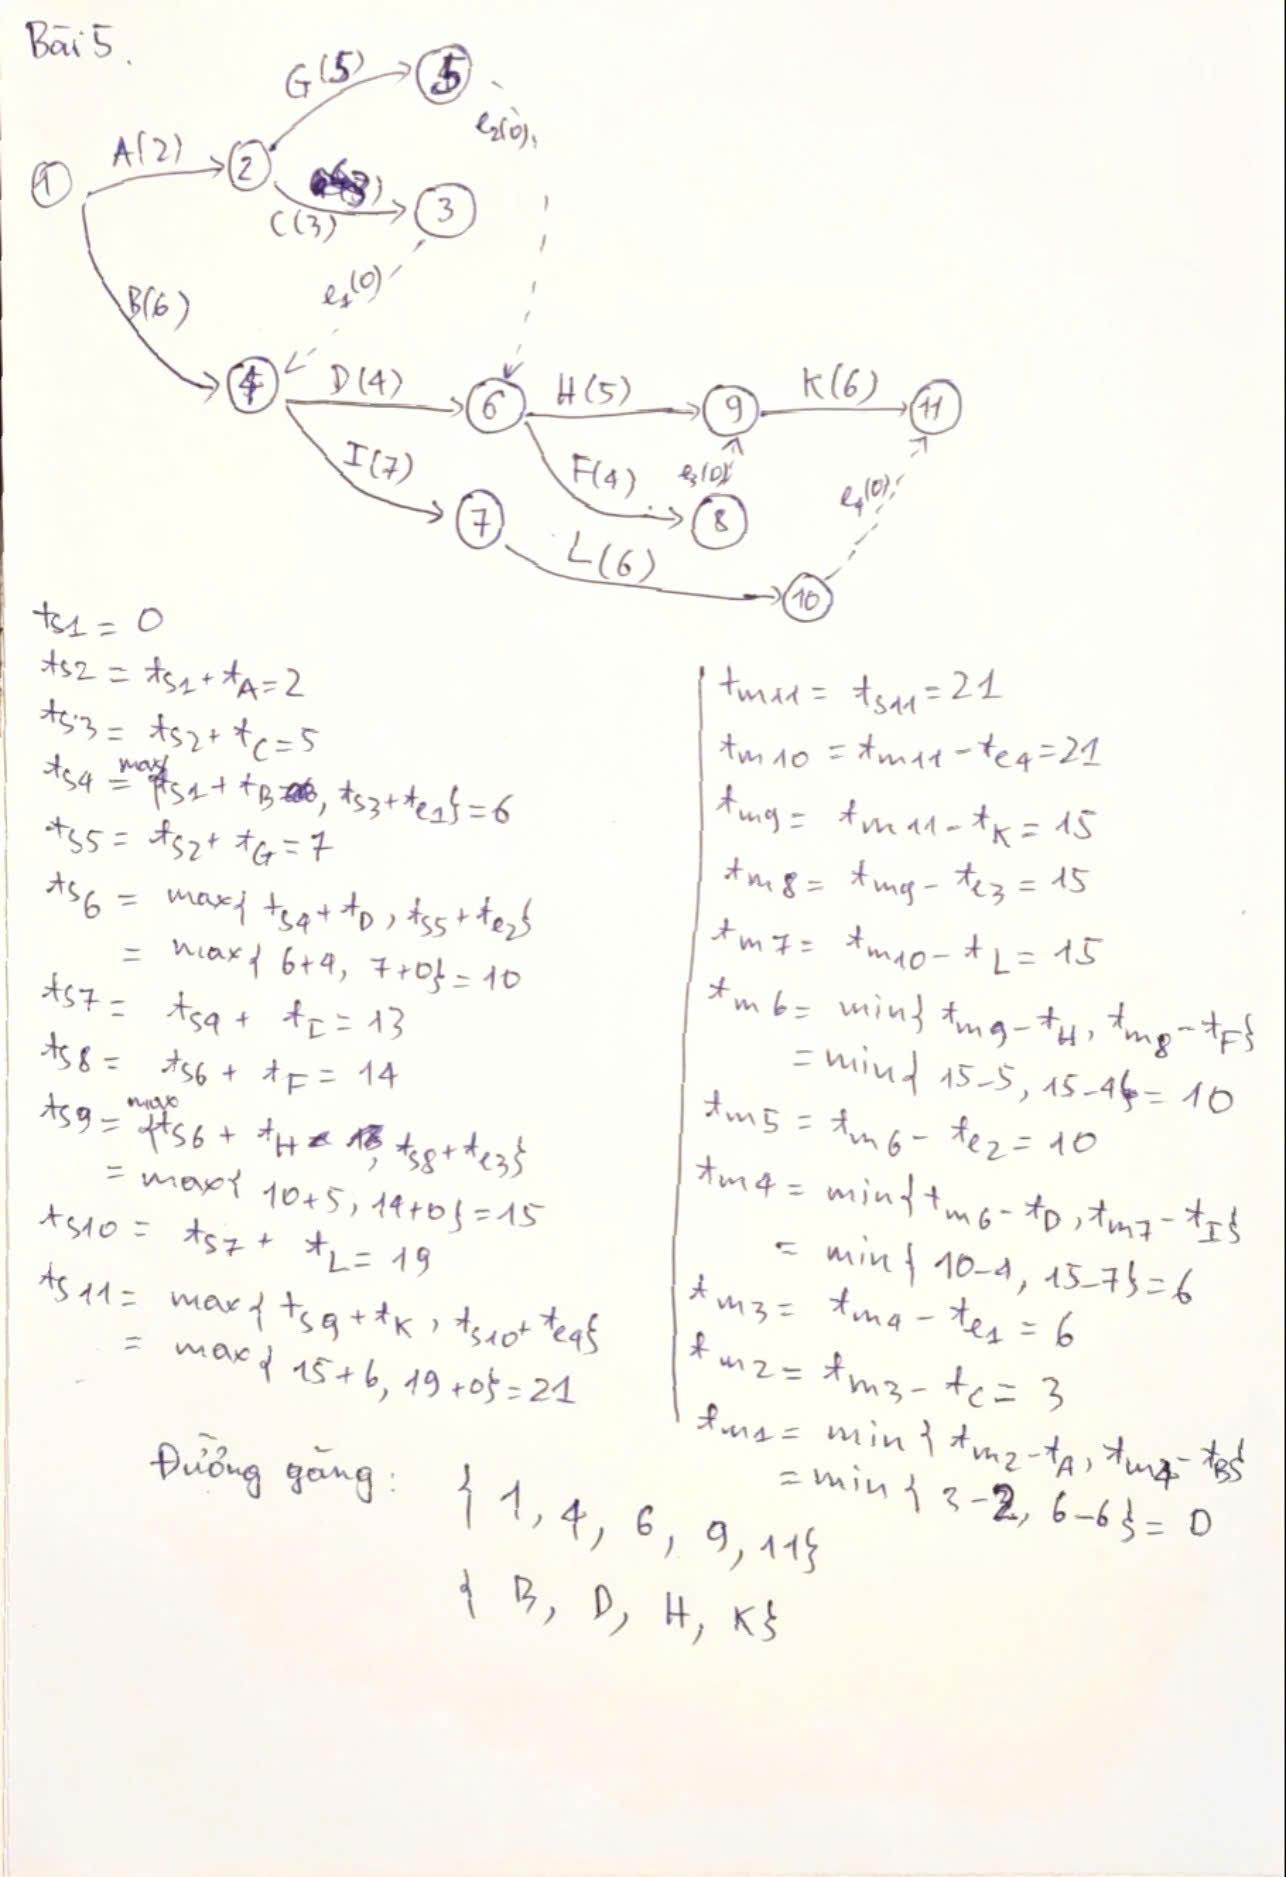 Bài 5.
G(5)
5
e2(0)
A(2)
1
2
C(3)
3
e1(0)
B(6)
4
D(4)
6
H(5)
9
K(6)
11
I(7)
F(4)
e3(0)
e4(0)
7
8
L(6)
10
ts1 = 0
ts2 = ts1 + tA = 2
ts3 = ts2 + tC = 5
ts4 = max{ts1 + tB, ts3 + te1} = 6
ts5 = ts2 + tG = 7
ts6 = max{ts4 + tD, ts5 + te2}
= max{6+4, 7+0} = 10
ts7 = ts4 + tI = 13
ts8 = ts6 + tF = 14
ts9 = max{ts6 + tH, ts8 + te3}
= max{10+5, 14+0} = 15
ts10 = ts7 + tL = 19
ts11 = max{ts9 + tK, ts10 + te4}
= max{15+6, 19+0} = 21
tm11 = ts11 = 21
tm10 = tm11 - te4 = 21
tm9 = tm11 - tK = 15
tm8 = tm9 - te3 = 15
tm7 = tm10 - tL = 15
tm6 = min{tm9 - tH, tm8 - tF}
= min{15-5, 15-4} = 10
tm5 = tm6 - te2 = 10
tm4 = min{tm6 - tD, tm7 - tI}
= min{10-4, 15-7} = 6
tm3 = tm4 - te1 = 6
tm2 = tm3 - tC = 3
tm1 = min{tm2 - tA, tm4 - tB}
= min{3-2, 6-6} = 0
Đường găng: {1, 4, 6, 9, 11}
{B, D, H, K}